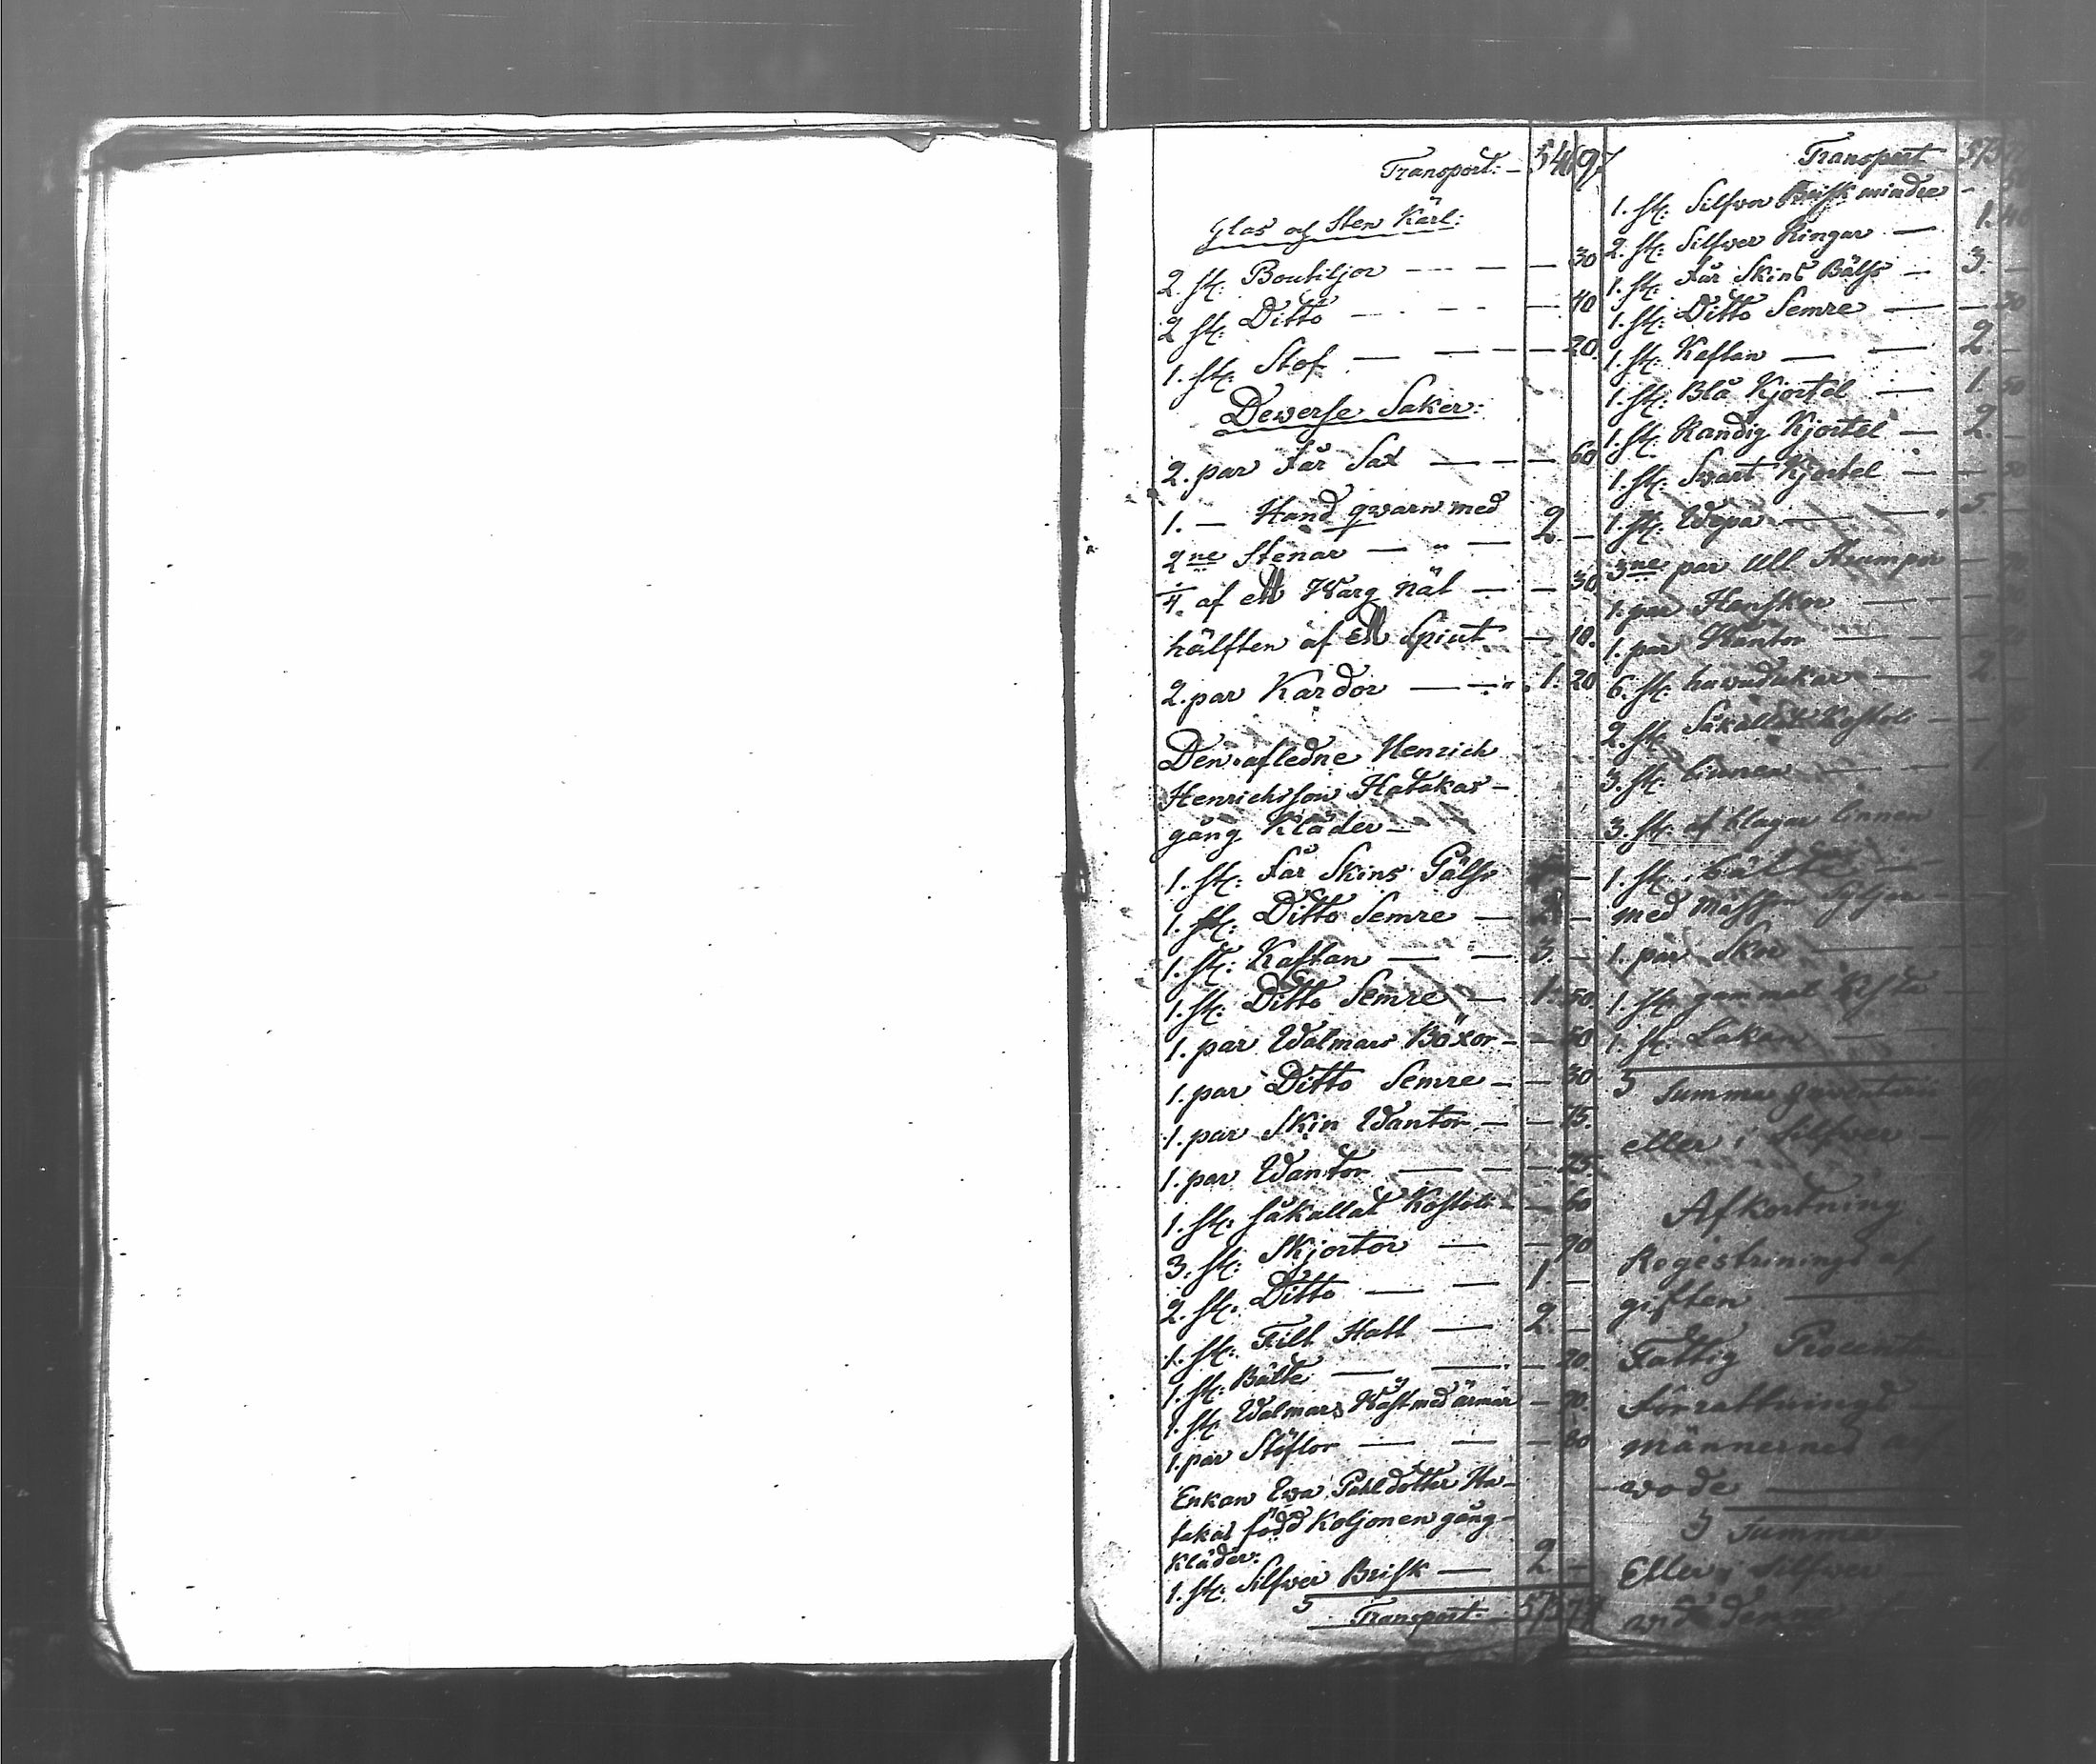 Transport: — 54697
Glas og Sten Kärl:
2. st: Boutiljor — — — 30
2 st: Ditto — — — 40
1. st: Stof — — — 20
Dewerse Saker:
2. par Får Sax — — — 60
1. — Hand qwarn med
2ne Stenar — „ — 2. —
1/4. af ett Warg nät — — 30
hälften af ett Spiut — 10.
2. par Kardor — — „ 1. 20
Den afledne Henrich
Henrichsson Hatakas-
gång Kläder —
1. st: Får Skins Pälss —
1. st: Ditto Semre — 2 —
1. st: Kaftan — — 3. —
1. st: Ditto Semre — 1. 50
1. par Walmars Böxor — — 50
1. par Ditto Semre — — 30
1. par Skin Wantor — — 75.
1. par Wantor — — — 25.
1. st: såkallat Kostoli — — 60
3. st: Skjortor — — 90
2. st: Ditto — — 1. —
1. st: Filt Hatt — 2. —
1. st: Bälte — — — 20.
1. st: Walmars Wäst med ärmar — 70.
1. par Stöflor — — — 80
Enkan Ewa Pahlsdotter Ha-
takas född Koljonen gång-
Kläder:
1. st: Silfwer Brisk — 2 —
Transport: 57377
Transport 573
1. st: Silfwer Brisk mindre —
2. st: Silfwer Ringar — 1. 40
1. st: Får Skins Bälss — 3. —
1. st: Ditto Semre — — 50
1. st: Kaftan — — 2. —
1. st: Blå Kjortel — 1. 50
1. st: Randig Kjortel — 2. —
1. st: Swart Kjortel — — 50
1. st: Wepa — — „ 5 —
3ne par Ull Strumpor —
1. par Hanskor — —
1. par Wantor — —
6. st: huwudukar — 2. —
2. st: Såkallat Kostoli —
3. st: linnen — — 1.
3. st: af klagar linnen
1. st: bälte —
med Massjn
1. par Skor —
1. st: gammal Kista —
1. st: Lakan —
Summa Inventarii
eller i Silfwer —
Afkortning
Regestrinings af
giften —
Fattig Procenten
Förrattnings
männernes ar
wode —
Summa
Eller i Silfwer